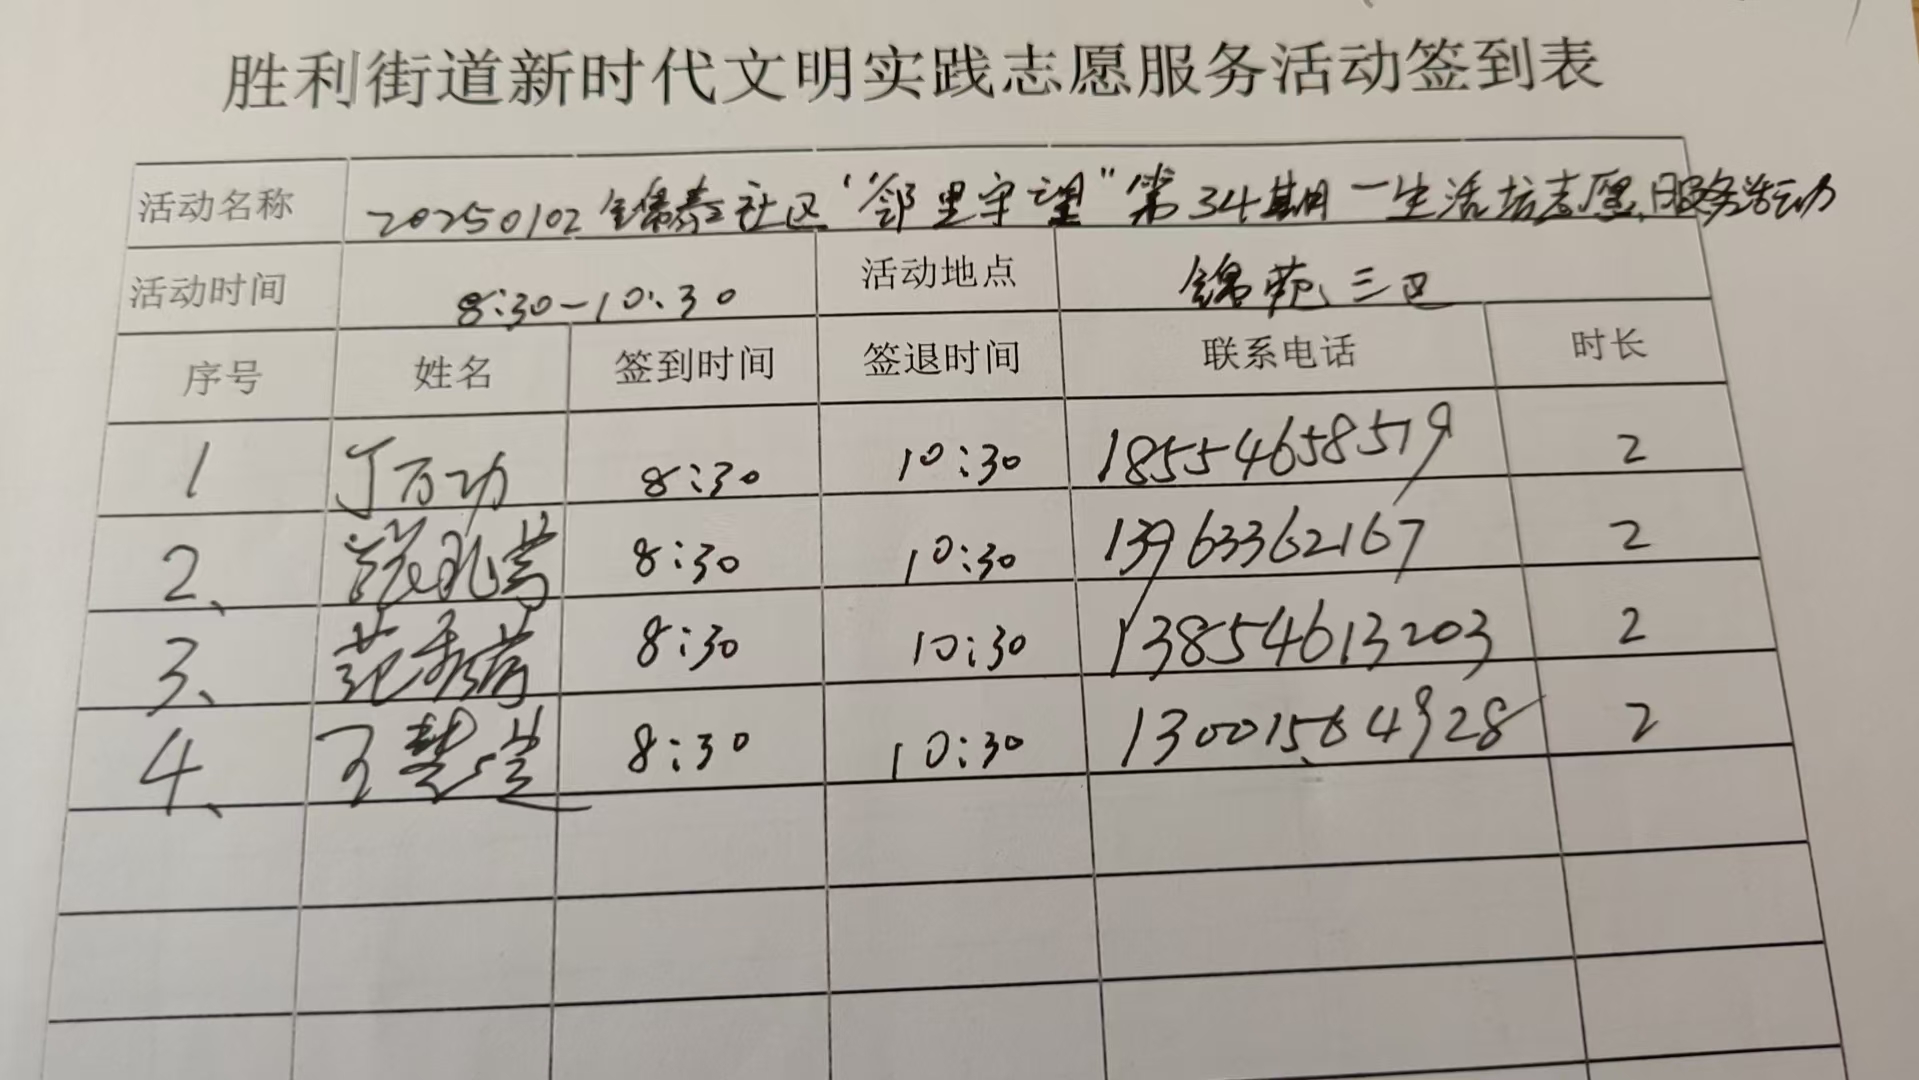 胜利街道新时代文明实践志愿服务活动签到表
活动名称 20250102锦泰社区"邻里守望"第34期一生活坊志愿服务活动
活动时间 8:30-10:30 活动地点 锦苑三区
序号 姓名 签到时间 签退时间 联系电话 时长
1 丁万功 8:30 10:30 18554658519 2
2、 8:30 10:30 13963362167 2
3、 范秀 8:30 10:30 13854613203 2
4、 王楚兰 8:30 10:30 13001564928 2